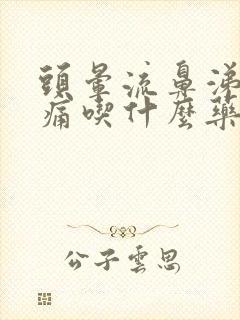 頭暈流鼻涕
痛喫什麼藥
公子雲思